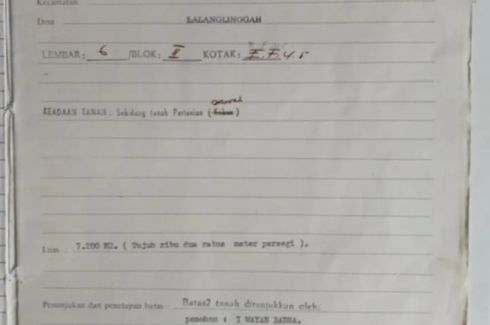 Kecamatan
Desa LALANGLINGGAH
LEMBAR: 6 /BLOK: II KOTAK: E.F.4.5
KEADAAN TANAH: Sebidang tanah Pertanian (Kebun)
Luas : 7.200 M2. ( Tujuh ribu dua ratus meter persegi ).
Penunjukan dan penetapan batas : Batas2 tanah ditunjukkan oleh:
pemohon : I WAYAN